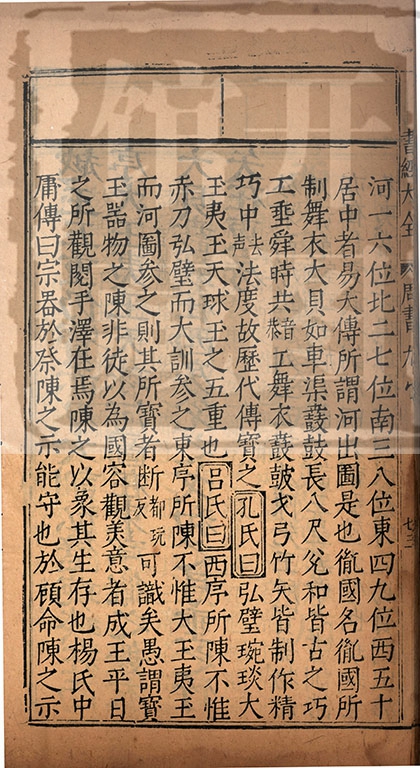 河一六位北二七位南三八位東四九位西五十
居中者易大傳所謂河出圖是也胤國名胤國所
制舞衣大貝如車渠鼖鼓長八尺兊和皆古之巧
工垂舜時共音恭工舞衣鼖鼓戈弓竹矢皆制作精
巧中去聲法度故歷代傳寶之孔氏曰弘璧琬琰大
玉夷玉天球玉之五重也呂氏曰西序所陳不惟
赤刀弘璧而大訓參之東序所陳不惟大玉夷玉
而河圖參之則其所寶者断都玩反可識矣愚謂寶
玉器物之陳非徒以為國容觀美意者成王平日
之所觀閱手澤在焉陳之以象其生存也楊氏中
庸傳曰宗器於祭陳之示能守也於顧命陳之示
書經大全
周書